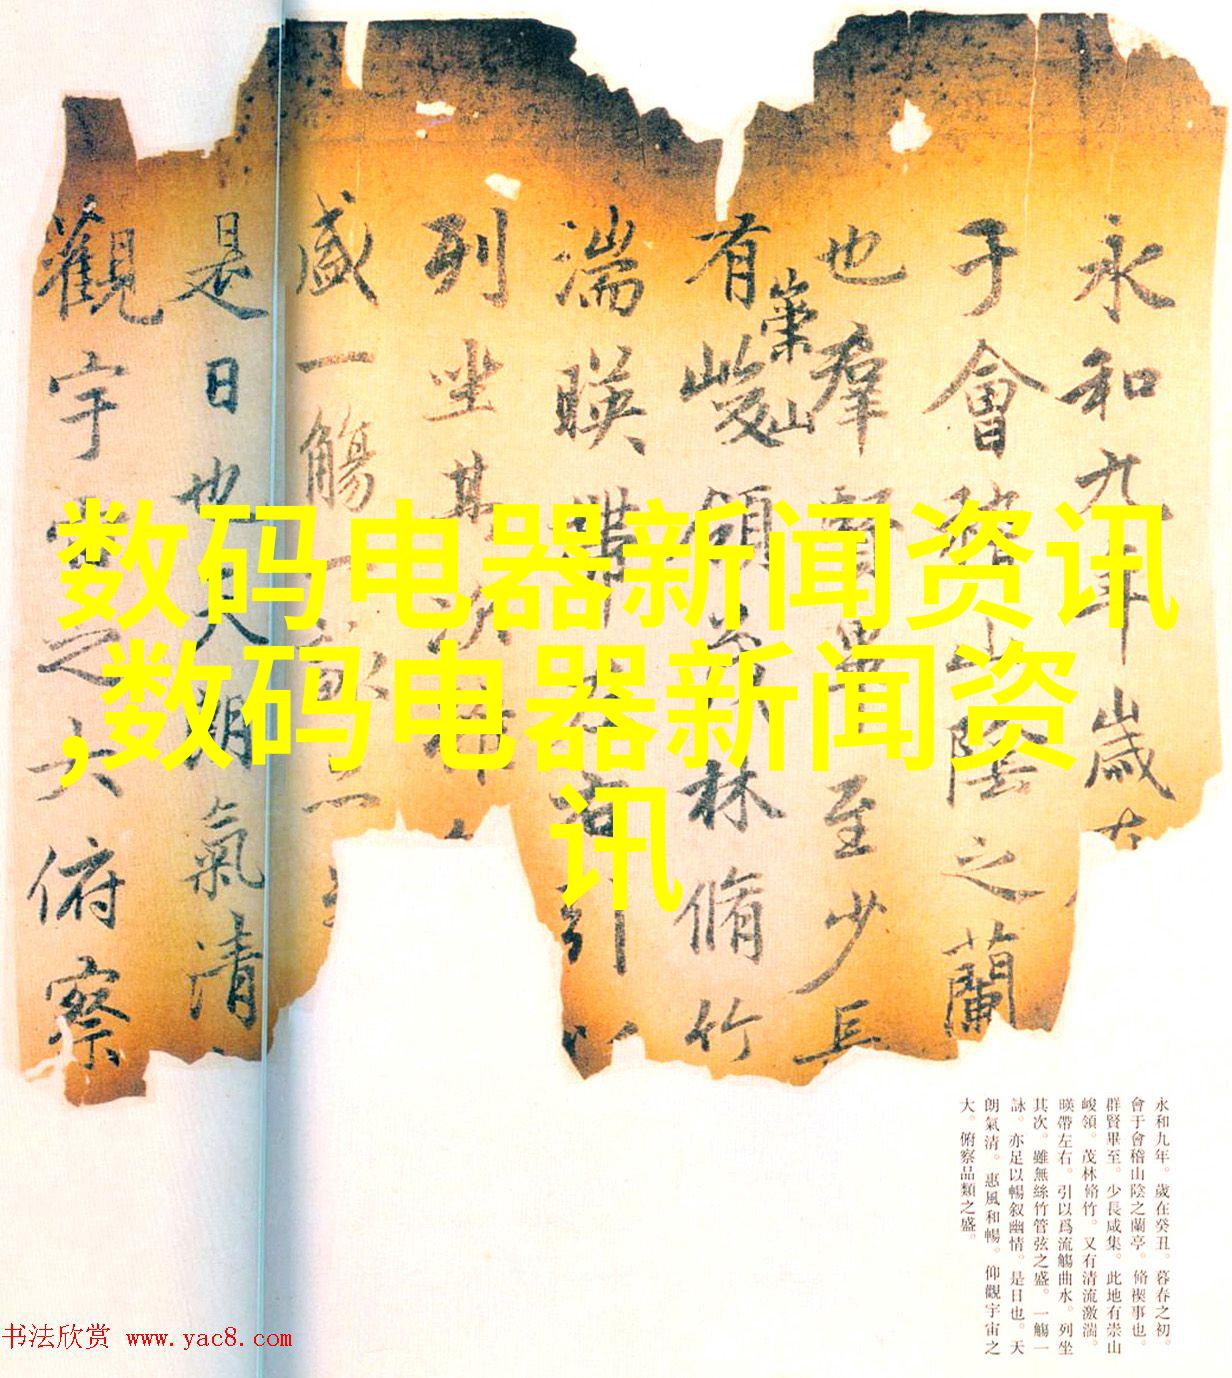 永和九年歲在
于會稽山陰之蘭
也羣賢畢至少長
有崇山峻領茂林脩竹
湍暎帶左右引以
列坐其次
盛一觴一詠亦
是日也天朗氣清
觀宇宙之大俯察
数码电器新闻资讯
,数码电器新闻资
讯
永和九年。歲在癸丑。暮春之初。
會于會稽山陰之蘭亭。脩禊事也。
群賢畢至。少長咸集。此地有崇山
峻領。茂林脩竹。又有清流激湍。
暎帶左右。引以爲流觴曲水。列坐
其次。雖無絲竹管弦之盛。一觴一
詠。亦足以暢叙幽情。是日也。天
朗氣清。惠風和暢。仰觀宇宙之
大。俯察品類之盛。
书法欣赏 www.yac8.com